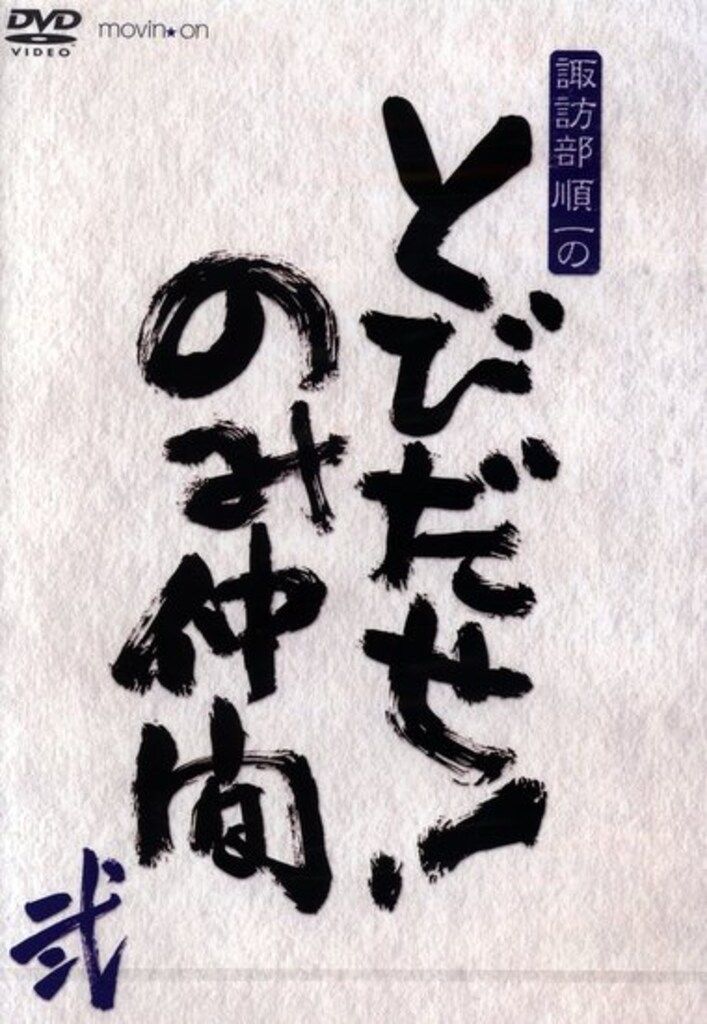 DVD
VIDEO
movin★on
諏訪部順一の
とびだせ!
のみ仲間
弐